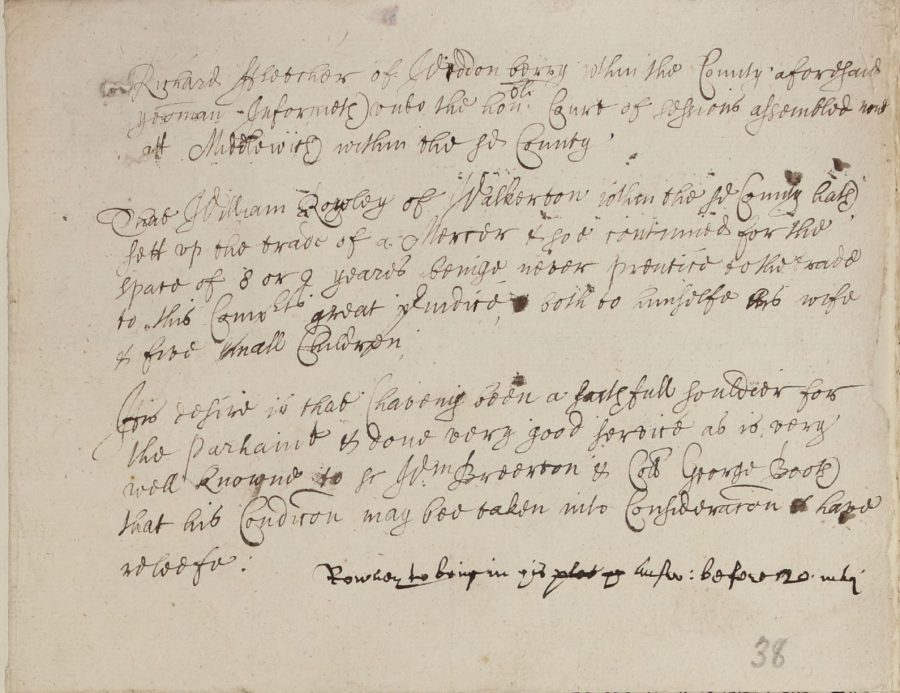 Richard ffletcher of Widdonberry wthin the County aforesaid
yeoman Informeth vnto the honoble Court of sessions assembled now
att Middlewich within the sd County
That William Rowley of Walkerton wthin the sd County hath
sett vp the trade of a Mercer & soe continued for the
space of 8 or 9 yeares beinge never prentice to the trade
to this Complts great pjudice, both to himselfe his wife
& five small Children
His desire is that haveing been a faithfull souldier for
the Parliamt & done very good service as is very
well knowne to sr Wm Breerton & Coll George Booth
that his Condicon may bee taken into Consideracon & have
releefe:
Rowley to bring in his Answ: before
38